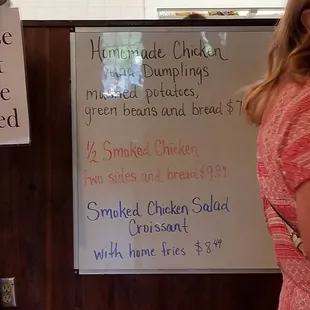 Homemade Chicken
and Dumplings
mashed potatoes,
green beans and bread $7
1/2 Smoked Chicken
two sides and bread $9.89
Smoked Chicken Salad
Croissant
with home fries $8.49